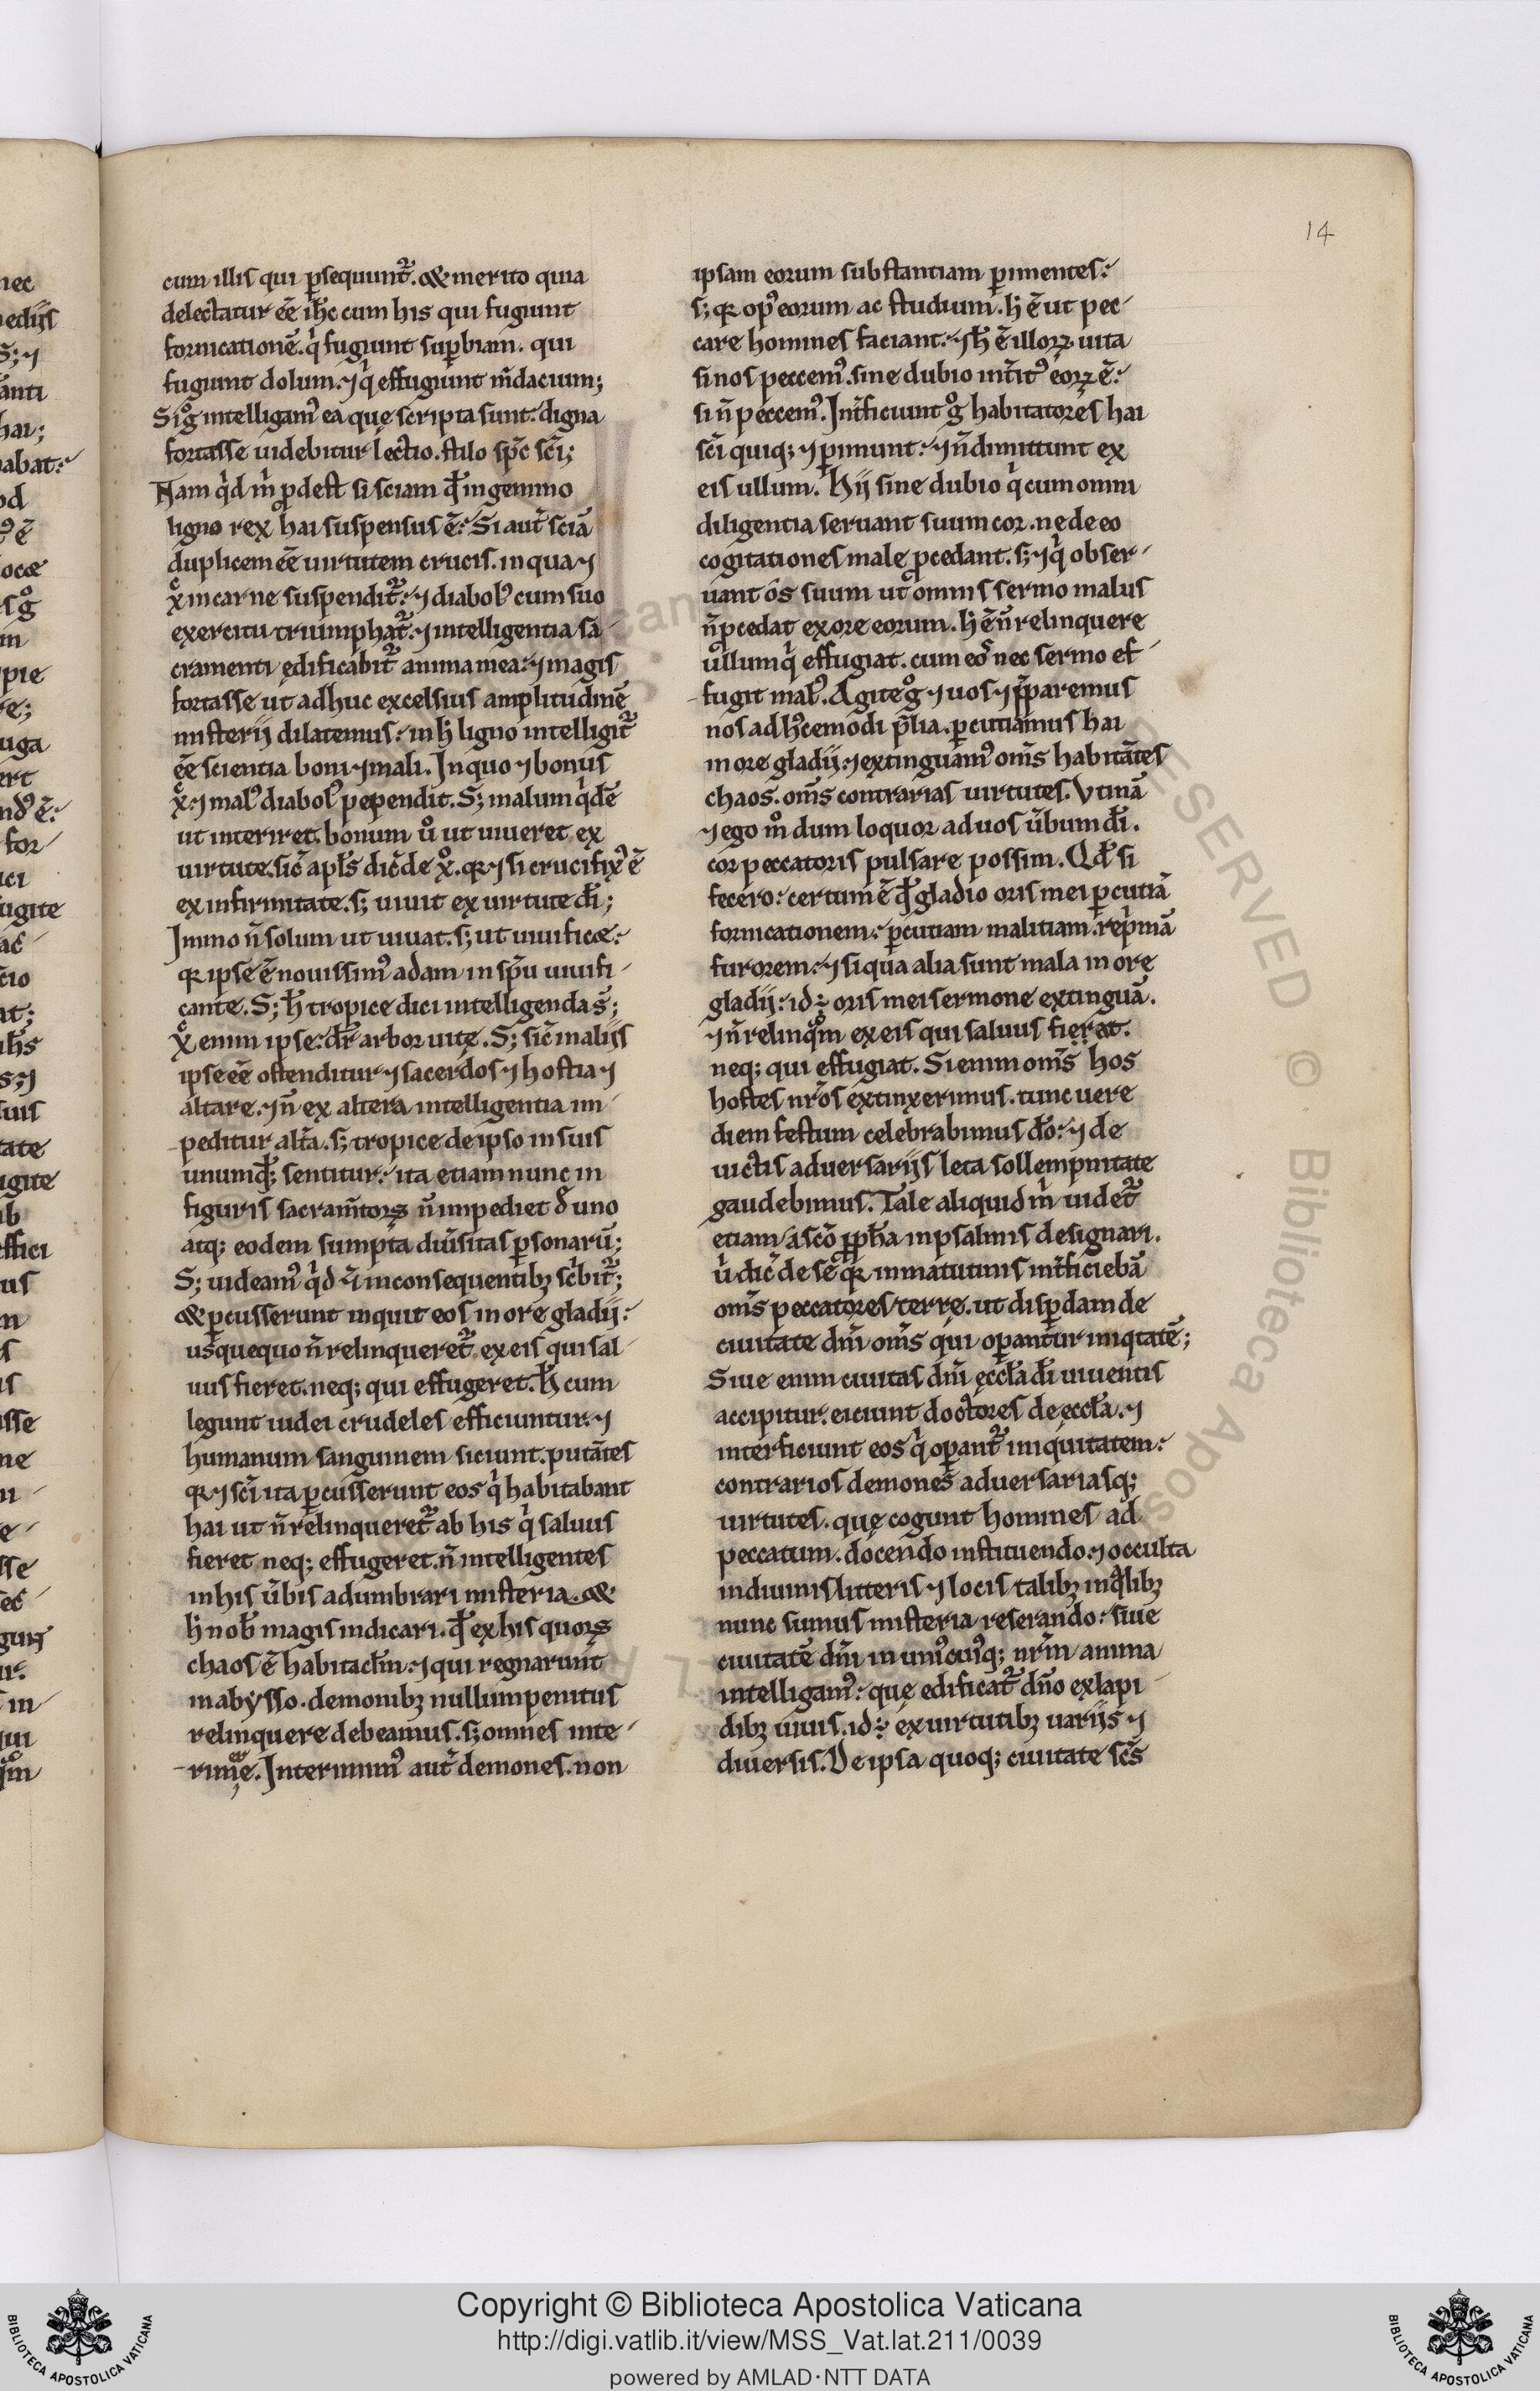 14
cum illis qui p̱sequunt᷑. & merito quia
delectatur ee̅ ih̅c cum his qui fugiunt
fornicatione̅. qͥ fugiunt sup̱biam. qui
fugiunt dolum. ⁊ qͥ effugiunt m̅dacium;
Si gͦ intelligamꝰ ea quę scripta sunt. digna
fortasse uidebitur lectio. stilo sp̅c sc̅i;
Nam qͥd m̅ ꝓdest si sciam qđ in gemino
ligno rex hai suspensus e̅. Si aut̅ scia̅
duplicem ee̅ uirtutem crucis. in qua ⁊
xͨ in carne suspendit᷑. ⁊ diabolꝰ cum suo
exercitu triumphat᷑. ⁊ intelligentia sa-
cramenti ędificabit᷑ anima mea. ⁊ magis
fortasse ut adhuc excelsius amplitudine̅
misterij dilatemus. in h̅ ligno intelligit᷑
ee̅ scientia boni ⁊ mali. In quo ⁊ bonus
xͨ. ⁊ malꝰ diabolꝰ pependit. S; malum qͥde̅
ut interiret. bonum uͦ ut uiueret ex
uirtute. sic̅ apl̅s dic̅ de xͦ. qꝛ ⁊ si crucifixꝰ e̅
ex infirmitate. s; uiuit ex uirtute di̅;
Immo n̅ solum ut uiuat. s; ut uiuificæ.
qꝛ ipse e̅ nouissimꝰ adam in sp̅u uiuifi-
cante. S; h̅ tropice dici intelligenda s̅;
xͨ enim ipse. dr̅ arbor uitę. S; sic̅ in alijs
ipse ee̅ ostenditur ⁊ sacerdos ⁊ hostia ⁊
altare. ⁊ n̅ ex altera intelligentia im-
peditur alt̅a. s; tropice de ipso in suis
unumqđ; sentitur. ita etiam nunc in
figuris sacram̅toꝝ n̅ impediet đ uno
atq; eodem sumpta diu̅sitas p̱sonaru̅;
S; uideamꝰ qͥd ⁊ in consequentibꝫ sc̅bit᷑;
& p̱cusserunt inquit eos in ore gladij.
usquequo n̅ relinqueret᷑ ex eis qui sal-
uus fieret. neq; qui effugeret. H̅ cum
legunt iudei crudeles efficiuntur. ⁊
humanum sanguinem siciunt. puta̅tes
qꝛ ⁊ sc̅i ita p̱cusserunt eos qͥ habitabant
hai ut n̅ relinqueret᷑ ab his qͥ saluus
fieret neq; effugeret. n̅ intelligentes
in his u̅bis adumbrari misteria. &
h̅ nob̅ magis indicari. qđ ex his quoꝝ
chaos e̅ habitacl̅m. ⁊ qui regnarunt
in abysso. demonibꝫ nullum penitus
relinquere debeamus. s; omnes inte-
rime. Interimimꝰ aut̅ demones. non
ipsam eorum substantiam p̱imentes.
s; qꝛ opꝰ eorum ac studium. h̅ e̅ ut pec-
care homines faciant. ⁊ h̅ e̅ illoꝝ uita
si nos peccemꝰ. sine dubio int̅itꝰ eoꝝ e̅.
si n̅ peccemꝰ. Int̅ficiunt gͦ habitatores hai
sc̅i quiq; ⁊ p̱imunt. ⁊ n̅ dimittunt ex
eis ullum. Hij sine dubio qͥ cum omni
diligentia seruant suum cor. ne de eo
cogitationes male ꝓcedant. s; ⁊ qͥ obser-
uant os suum ut omnis sermo malus
n̅ ꝓcedat ex ore eorum. h̅ e̅ n̅ relinquere
ullum qͥ effugiat. cum eos nec sermo ef-
fugit malꝰ. Agite gͦ ⁊ uos ⁊ p̅paremus
nos ad hꝰcemodi p̅lia. p̱cutiamus hai
in ore gladij. ⁊ extinguamꝰ om̅s habita̅tes
chaos. om̅s contrarias uirtutes. Vtina̅
⁊ ego mͦ dum loquor ad uos u̅bum di̅.
cor peccatoris pulsare possim. Qđ si
fecero. certum e̅ qđ gladio oris mei p̱cutia̅
fornicationem. p̱cutiam malitiam. rep̅ma̅
furorem. ⁊ si qua alia sunt mala in ore
gladij. id ÷ oris mei sermone extingua̅.
⁊ n̅ relinqͦm ex eis qui saluus fierat.
neq; qui effugiat. Si enim om̅s hos
hostes nr̅os extinxerimus. tunc uere
diem festum celebrabimus do̅. ⁊ de
uictis aduersarijs leta sollempnitate
gaudebimus. Tale aliquid m̅ uidet᷑
etiam a sc̅o ꝓph̅a in psalmis designari.
uͥ dic̅ de se qꝛ in matutinis int̅ficieba̅
om̅s peccatores terrę. ut disp̱dam de
ciuitate dn̅i om̅s qui op̱antur iniqͥtate̅;
Siue enim ciuitas dn̅i ęccl̅a di̅ uiuentis
accipitur. eiciunt doctores de ęccl̅a. ⁊
interficiunt eos qͥ op̱ant᷑ iniquitatem.
contrarios demones aduersariasq;
uirtutes. quę cogunt homines ad
peccatum. docendo instituendo. ⁊ occulta
in diuinis litteris ⁊ locis talibꝫ in qͣlibꝫ
nunc sumus misteria reserando. siue
ciuitate̅ dn̅i in unꝰcuiꝰq; nr̅m anima
intelligamꝰ. quę edificat᷑ dn̅o ex lapi-
dibꝫ uiuis. id ÷ ex uirtutibꝫ uarijs ⁊
diuersis. De ipsa quoq; ciuitate sc̅s
Copyright © Biblioteca Apostolica Vaticana
http://digi.vatlib.it/view/MSS_Vat.lat.211/0039
powered by AMLAD·NTT DATA
BIBLIOTECA APOSTOLICA VATICANA
BIBLIOTECA APOSTOLICA VATICANA